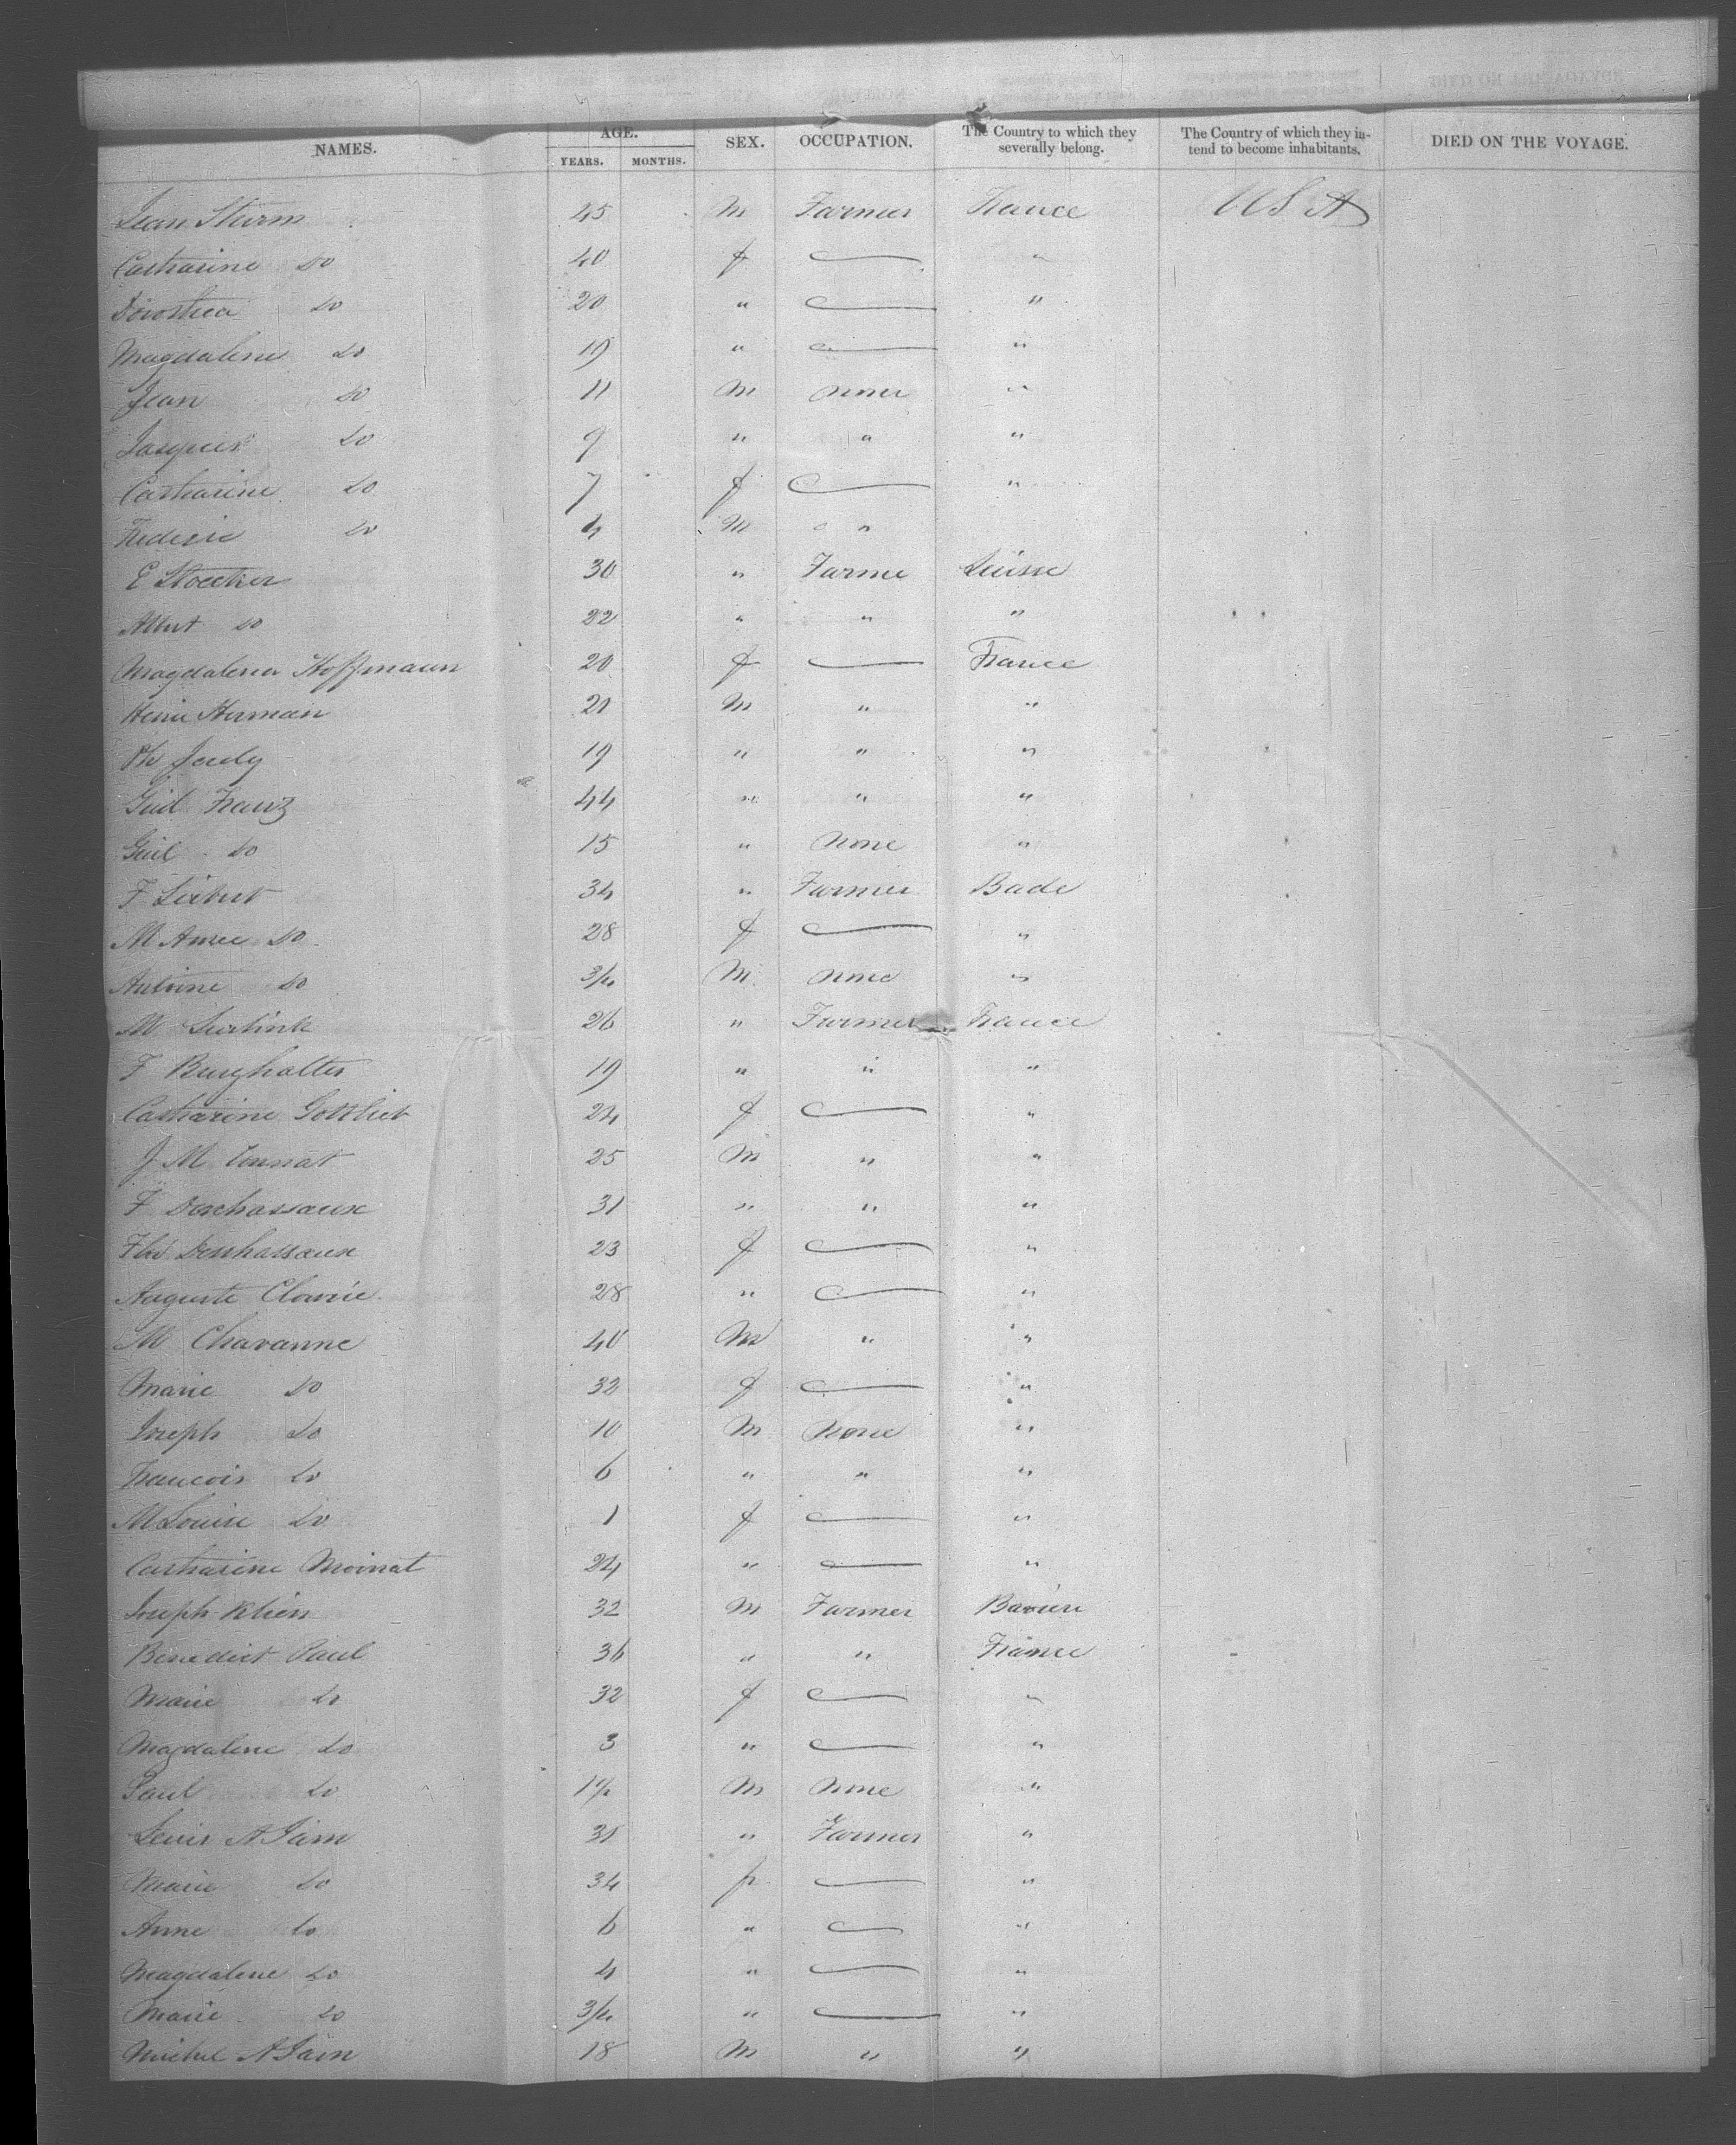 NAMES. AGE. YEARS. MONTHS. SEX. OCCUPATION. The Country to which they severally belong. The Country of which they intend to become inhabitants. DIED ON THE VOYAGE.
Jean Sturm 45 M Farmer France U S A
Catharine do 40 f "
Dorothea do 20 " "
Magdalene do 19 " "
Jean do 11 M none "
Jacques do 9 " " "
Catharine do 7 f "
Frederic do 4 M "
E Stoecker 30 " Farme Suisse
Albert do 22 " " "
Magdalena Hoffmann 20 f France
Henri Herman 21 M " "
Ph Judy 19 " " "
Guil Franz 44 " " "
Guil do 15 " none "
F 34 " Farmer Bade
M Anne do 28 f "
Antoine do 3/4 M none "
M 26 " Farmer France
F Burghalter 19 " " "
Catharine Gottlieb 24 f "
J M 25 M " "
F Deschassaux 31 " " "
Deschassaux 23 f "
Auguste Clavrie 28 " "
M Chavanne 40 M " "
Marie do 32 f "
Joseph do 10 M none "
Francois do 6 " " "
M Louise do 1 f "
Catharine Moinat 24 " "
Joseph Klien 32 M Farmer Baviere
Benedict Paul 36 " " France
Marie do 32 f "
Magdalene do 3 " "
Paul do 1 1/2 M none "
Louis A Jam 31 " Farmer "
Marie do 34 f "
Anne do 6 " "
Magdalene do 4 " "
Marie do 3/4 " "
Michel A Jam 18 M " "